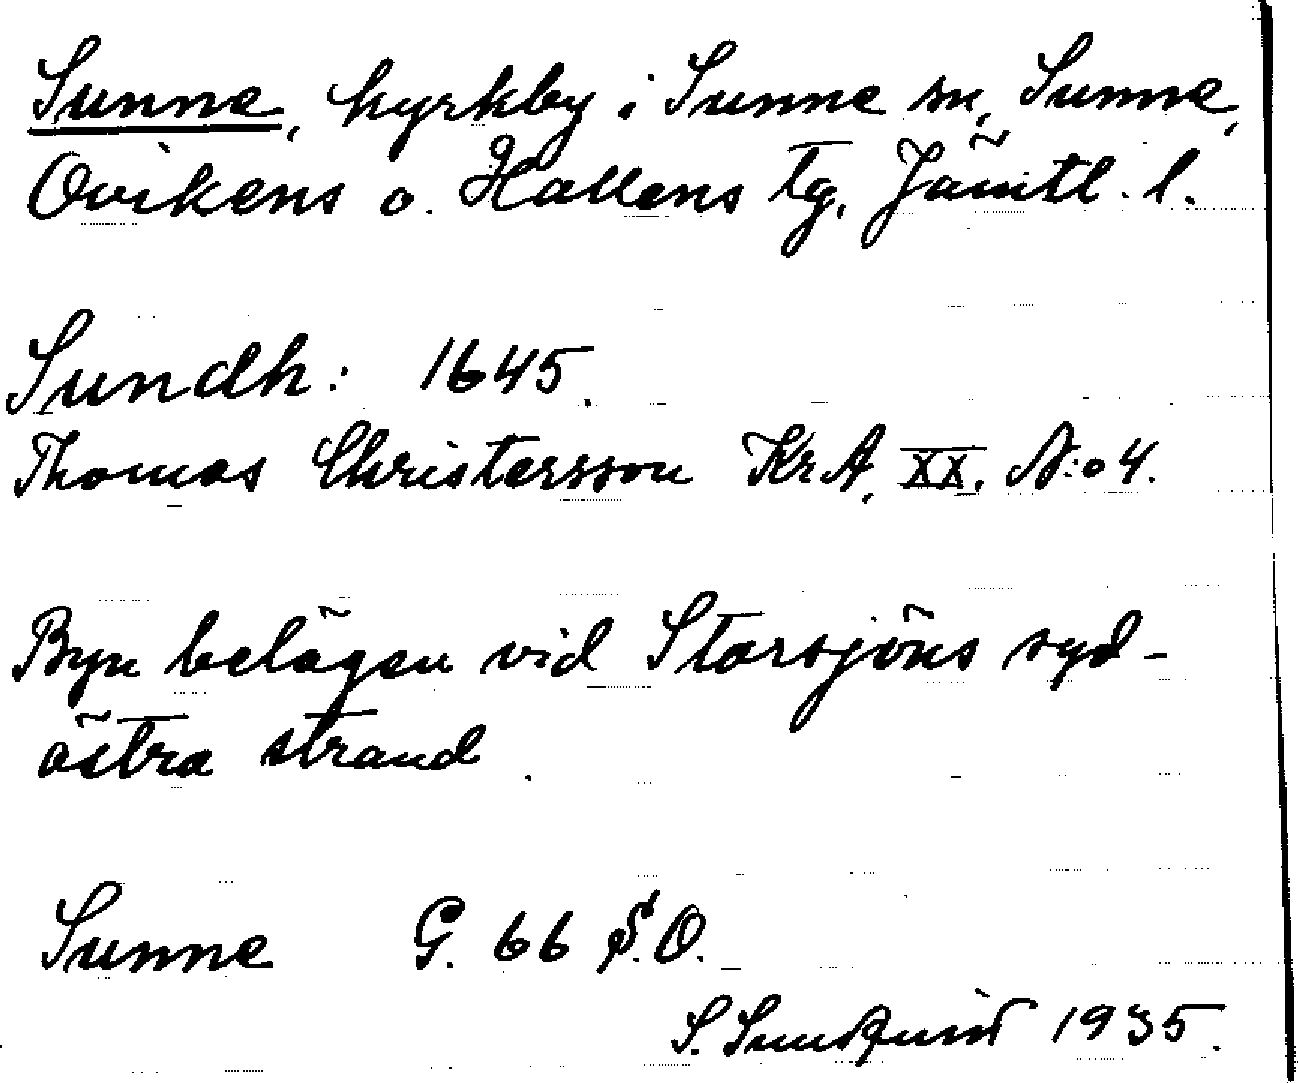 Sunne, kyrkby i Sunne sn, Sunne,
Ovikens o. Hallens tg, Jämtl. l.
Sundh: 1645.
Thomas Christersson Kr.A. XX. N:o 4.
Byn belägen vid Storsjöns syd-
östra strand.
Sunne G. 66 S.O.
S. Sundquist 1935.